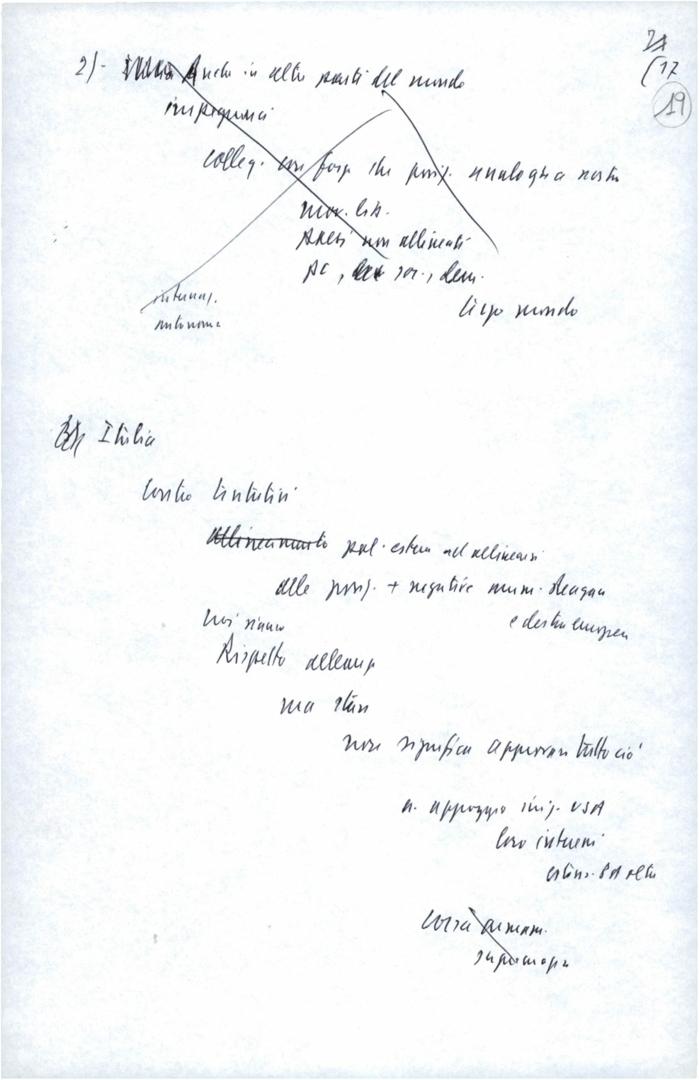 17
19
2)- Anche in altre parti del mondo
impegnarci
colleg. con forze che posiz. analoghe a nostre
mov. lib.
Paesi non allineati
PC, soc., dem.
terzo mondo
internaz.
autonoma
Italia
Contro tentativi
allineamento pol. estera ad allinearsi
alle posiz. + negative amm. Reagan
e destra europea
Noi siamo
Rispetto alleanze
ma stare
non significa approvare tutto ciò
a. appoggio iniz. USA
loro interessi
Corsa armam.
supremazia